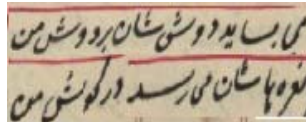 می بساید دوش شان بر دوش من
نعره ها شان می رسد در گوش من